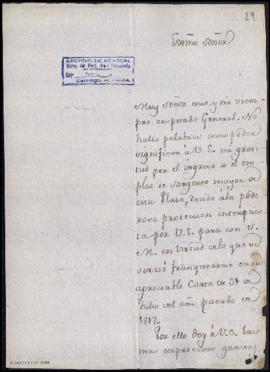 29
Exmo Señor
ARCHIVO DE ABASCAL
Muy señor mio y mi siem
pre respetado General. No
hallo palabras como poder
significar à V.E. mi grati
tud por el ingreso a el em
pleo de Sargento mayor de
esta Plaza, devido à la pode
rosa proteccion interpuesta
por V.E. para con S.
M. en virtud de lo que se
sirvió franquearme en su
apreciable Carta de 31 de
Julio del año pasado de
1817.
Por ello doy à V.E. las
mas expresivas gracias